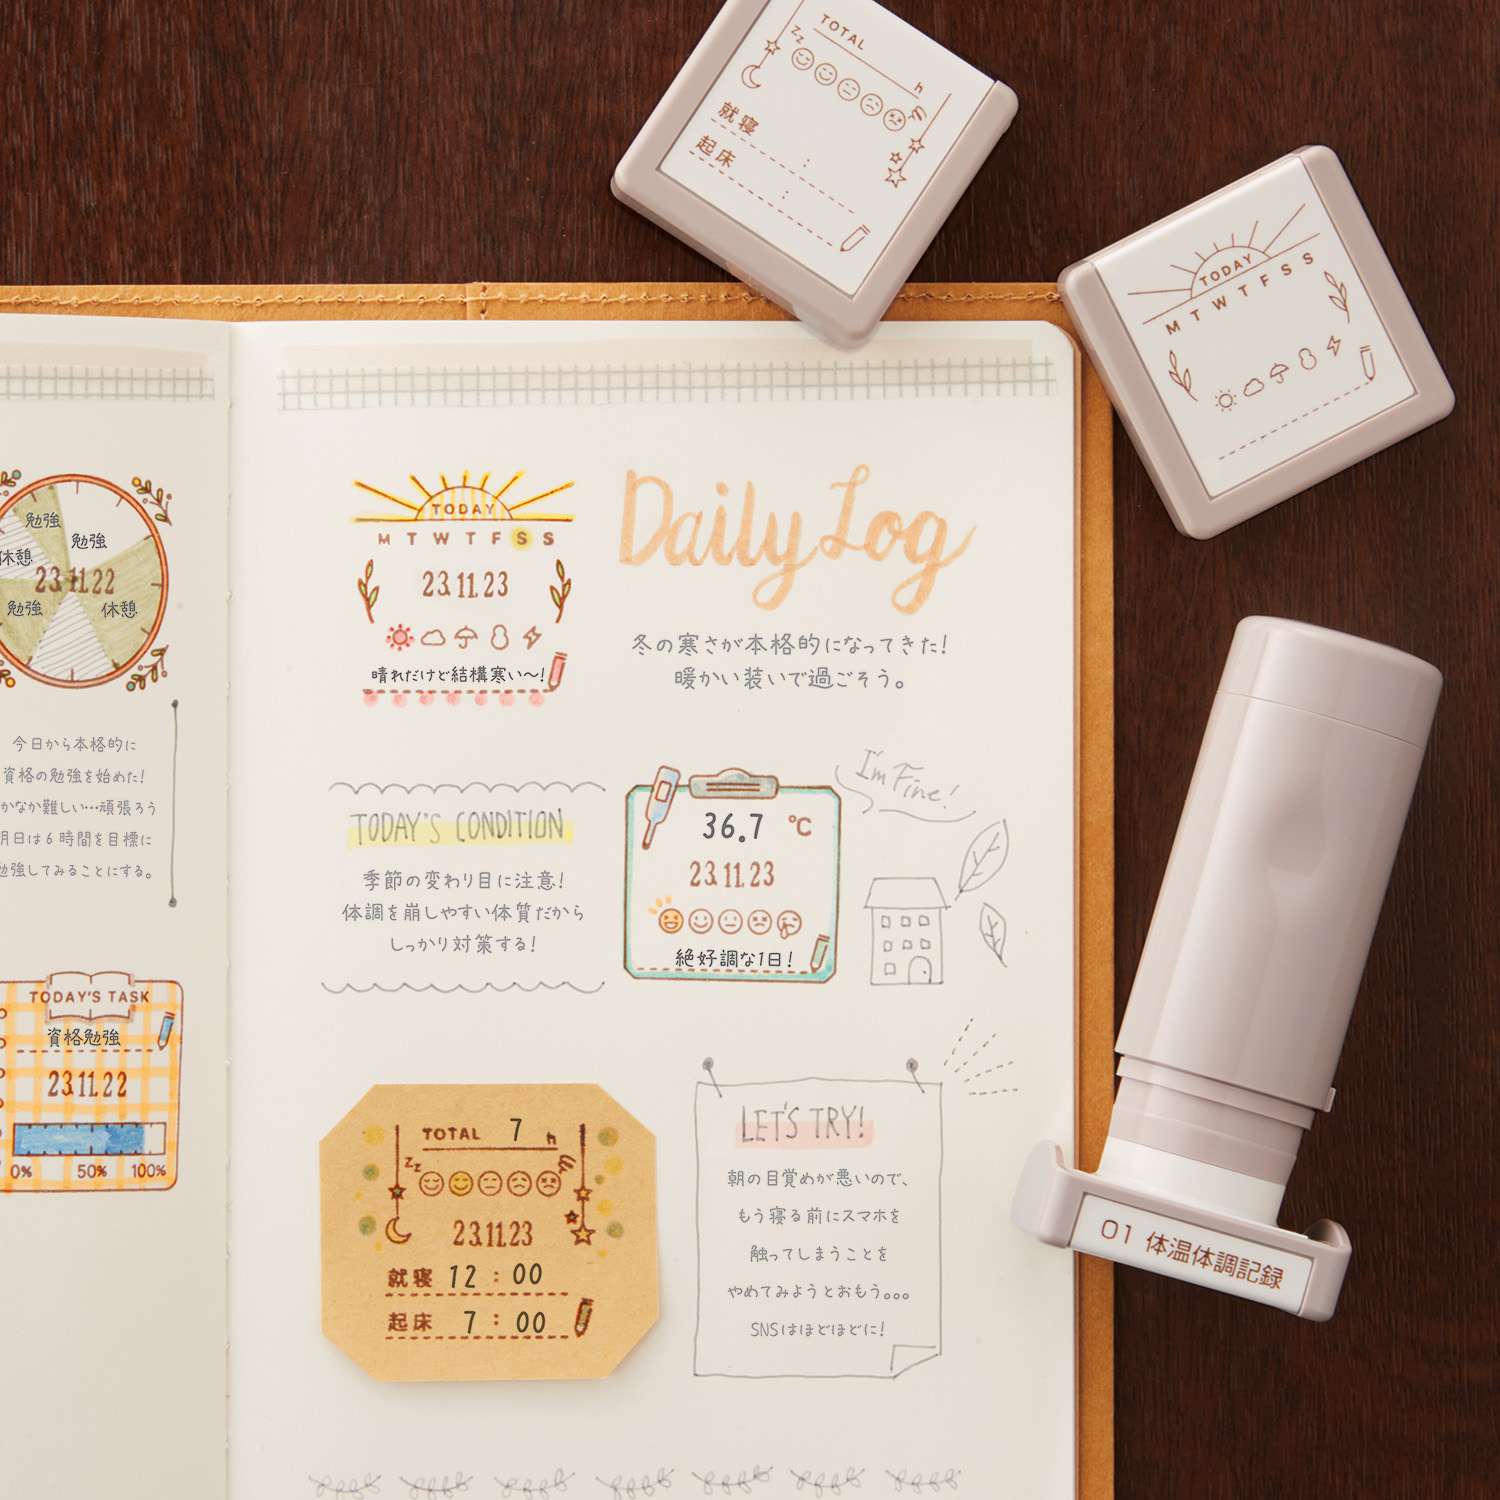 TOTAL
zz
h
就寝 :
起床 :
TODAY
M T W T F S S
勉強
勉強
休憩
23.11.22
勉強
休憩
今日から本格的に
資格の勉強を始めた!
かなか難しい…頑張ろう
明日は6時間を目標に
勉強してみることにする。
TODAY'S TASK
資格勉強
23.11.22
0% 50% 100%
TODAY
M T W T F S S
23.11.23
晴れだけど結構寒い〜!
Daily Log
冬の寒さが本格的になってきた!
暖かい装いで過ごそう。
TODAY'S CONDITION
季節の変わり目に注意!
体調を崩しやすい体質だから
しっかり対策する!
36.7 ℃
23.11.23
絶好調な1日!
I'm Fine!
TOTAL 7 h
zz
23.11.23
就寝 12:00
起床 7:00
LET'S TRY!
朝の目覚めが悪いので、
もう寝る前にスマホを
触ってしまうことを
やめてみようとおもう。。。
SNSはほどほどに!
01 体温体調記録